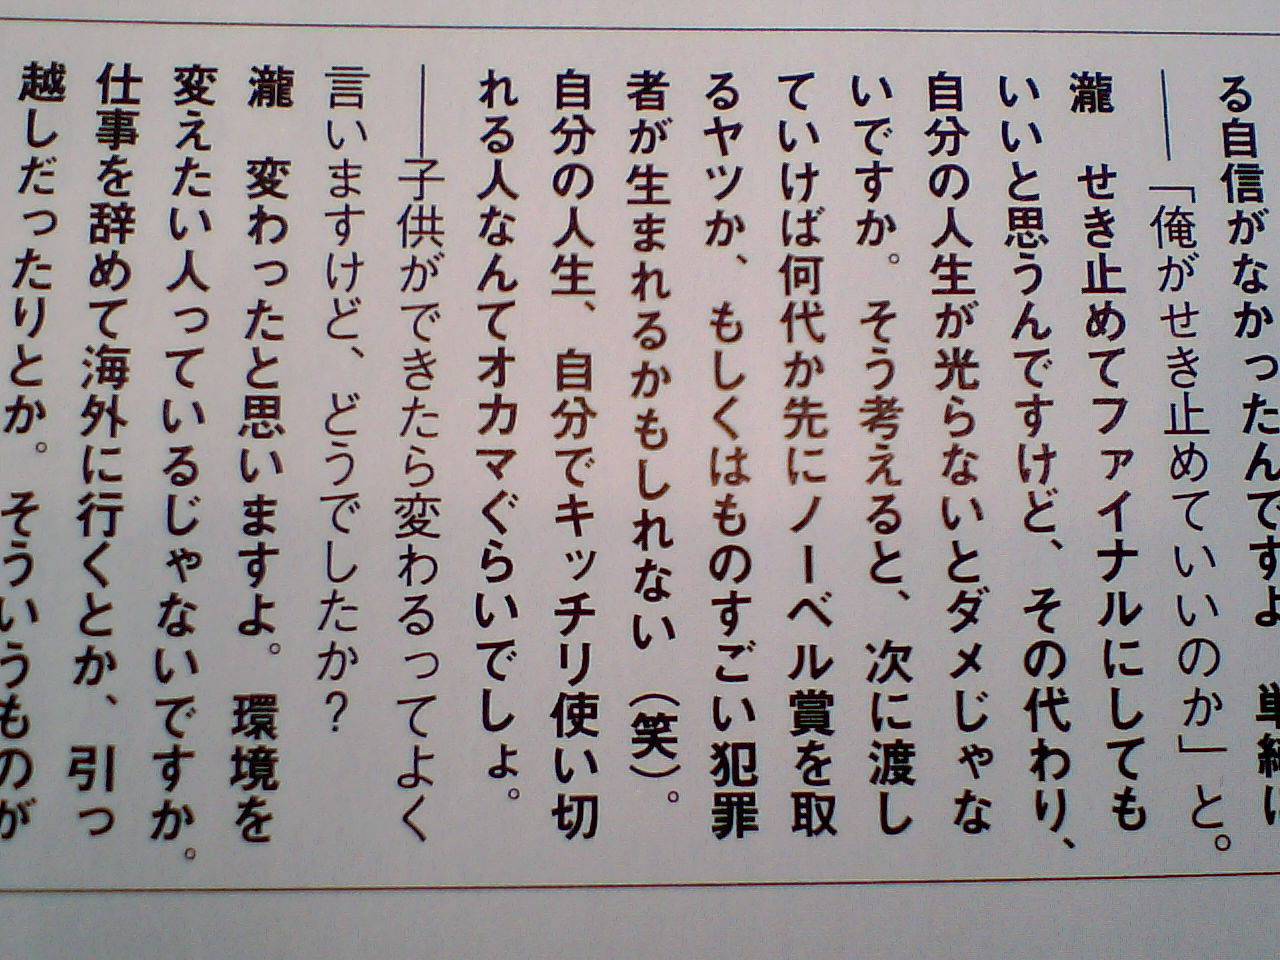 る自信がなかったんですよ
――「俺がせき止めていいのか」と。
瀧　せき止めてファイナルにしても
いいと思うんですけど、その代わり、
自分の人生が光らないとダメじゃな
いですか。そう考えると、次に渡し
ていけば何代か先にノーベル賞を取
るヤツか、もしくはものすごい犯罪
者が生まれるかもしれない（笑）。
自分の人生、自分でキッチリ使い切
れる人なんてオカマぐらいでしょ。
――子供ができたら変わるってよく
言いますけど、どうでしたか？
瀧　変わったと思いますよ。環境を
変えたい人っているじゃないですか。
仕事を辞めて海外に行くとか、引っ
越しだったりとか。そういうものが